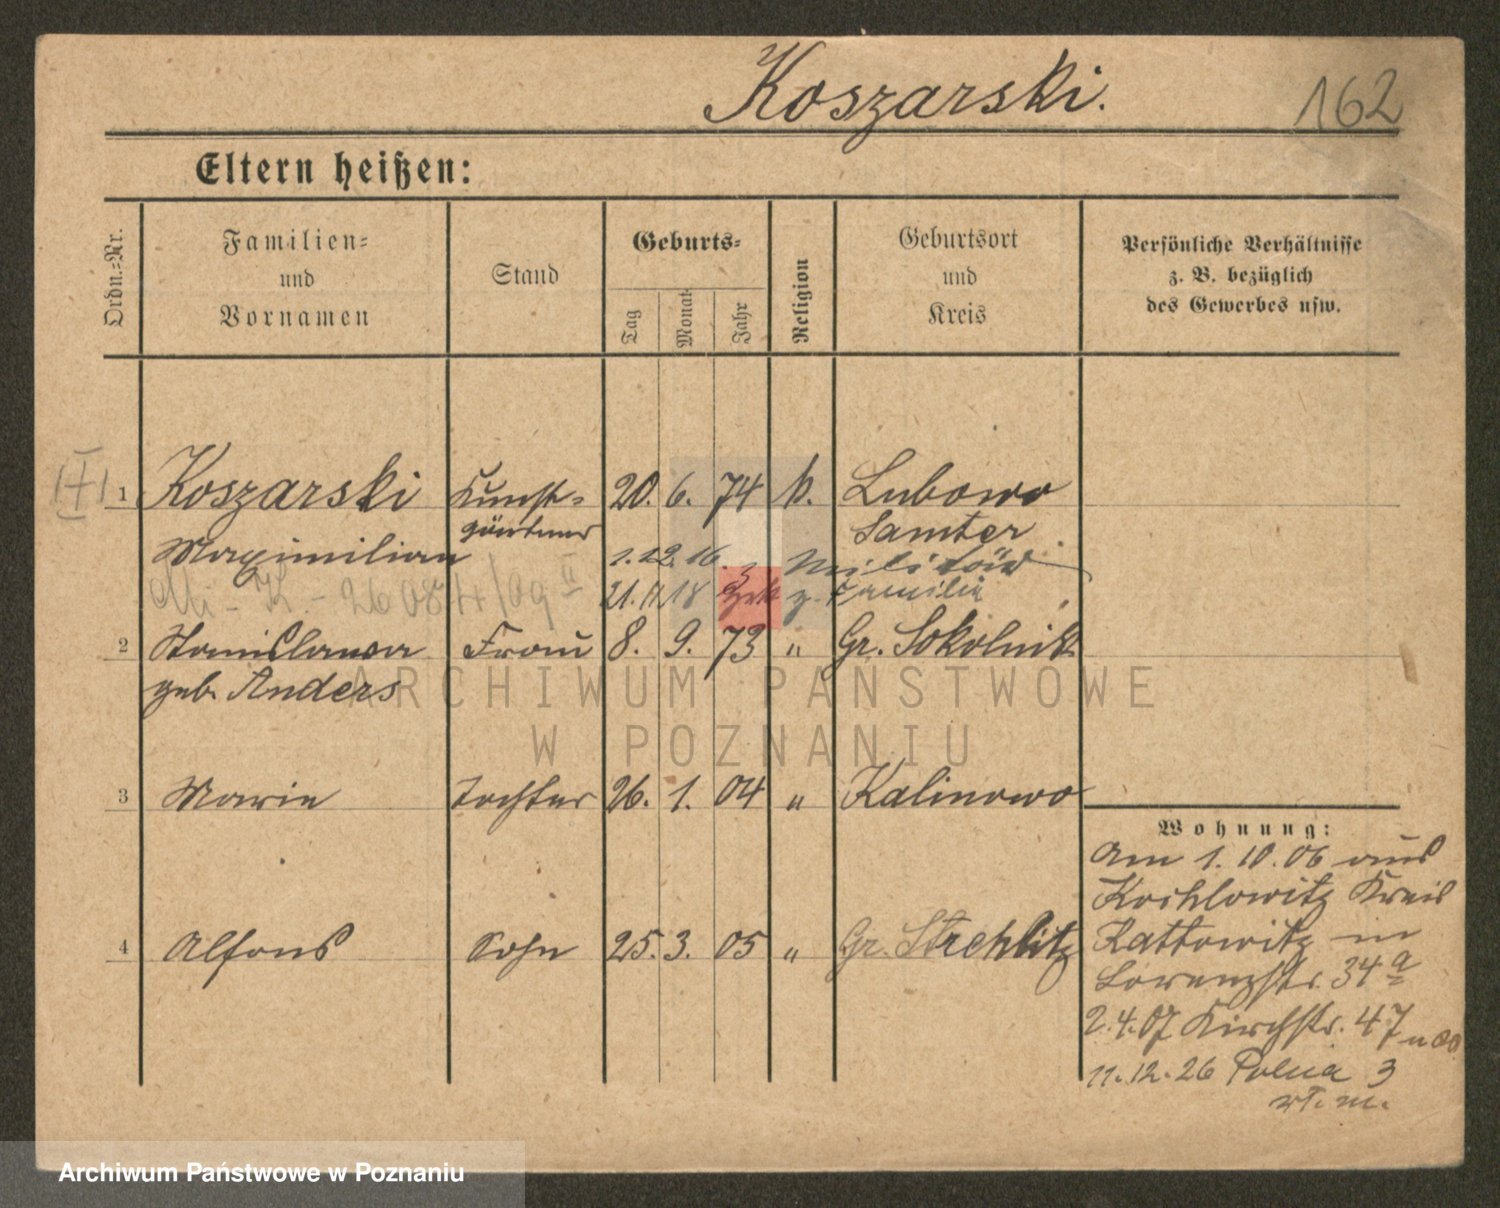 Koszarski.
162
Eltern heißen:
Ordn.-Nr.
Familien-
und
Vornamen
Stand
Geburts-
Tag
Monat
Jahr
Religion
Geburtsort
und
Kreis
Persönliche Verhältnisse
z. B. bezüglich
des Gewerbes usw.
1 Koszarski Kunst- 20. 6. 74 k. Lubowo
gärtner Samter
Maximilian 1.12.16. z. Militär
21.11.18 z. Familie
2 Stanislawa Frau 8. 9. 73 " Gr. Sokolnik
geb. Anders
3 Marie Tochter 26. 1. 04 " Kalinowo
4 Alfons Sohn 25. 3. 05 " Gr. Strehlitz
Wohnung:
Am 1.10.06 aus
Kochlowitz Kreis
Kattowitz in
Lorenzstr. 34a
2.4.07 Kirchstr. 47
11.12.26 Polna 3
ARCHIWUM PAŃSTWOWE
W POZNANIU
Archiwum Państwowe w Poznaniu